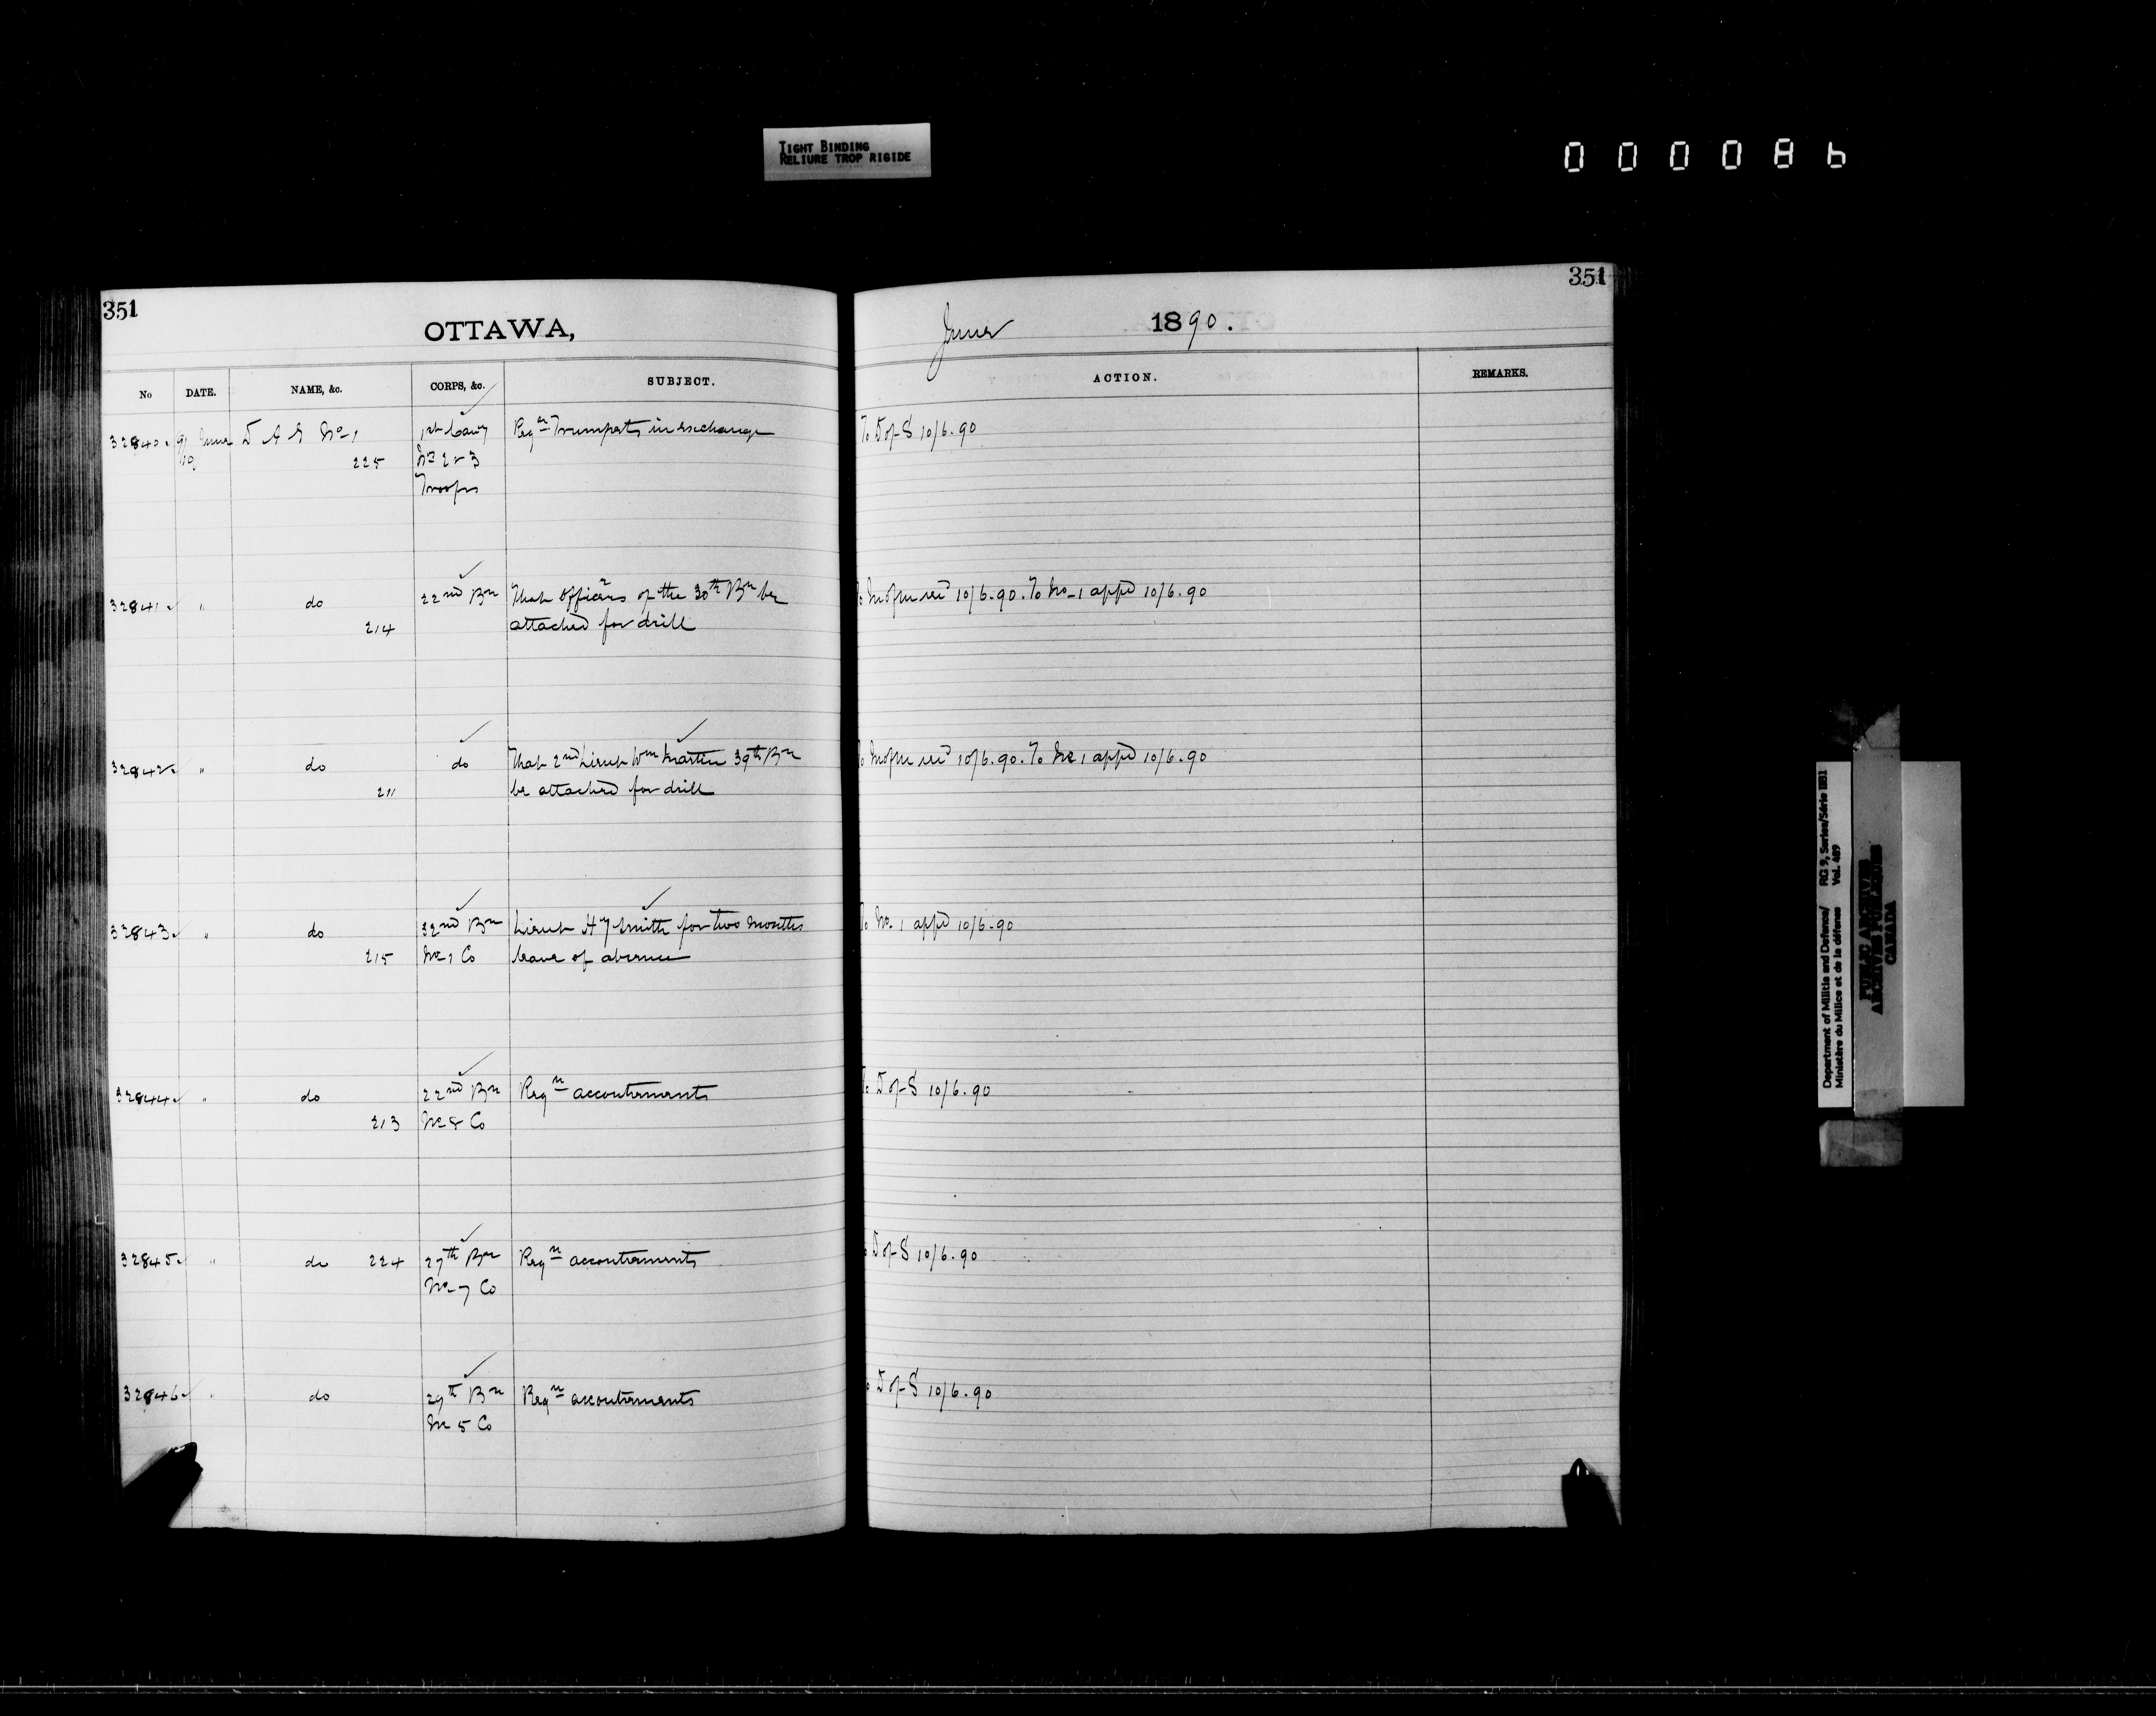 TIGHT BINDING
RELIURE TROP RIGIDE
000086
351
OTTAWA,
No DATE. NAME, &c. CORPS, &c. SUBJECT.
32840 9 June D A G No 1 1st Cavy Reqn Trumpets in exchange
10 225 No 2 & 3
Troops
32841 " do 22nd Bn That Officers of the 30th Bn be
214 attached for drill
32842 " do do That 2nd Lieut Wm Martin 39th Bn
211 be attached for drill
32843 " do 32nd Bn Lieut Hy Smith for two months
215 No 1 Co leave of absence
32844 " do 22nd Bn Reqn accoutrements
213 No 8 Co
32845 " do 224 27th Bn Reqn accoutrements
No 7 Co
32846 " do 29th Bn Reqn accoutrements
No 5 Co
351
June 1890.
ACTION. REMARKS.
To D of S 10/6.90
To M of M recd 10/6.90. To No 1 appd 10/6.90
To M of M recd 10/6.90. To No 1 appd 10/6.90
To No. 1 appd 10/6.90
To D of S 10/6.90
D of S 10/6.90
D of S 10/6.90
Department of Militia and Defence/ RG 9, Series/Série IIB1
Ministère du Milice et de la défense Vol. 489
PUBLIC ARCHIVES
ARCHIVES PUBLIQUES
CANADA